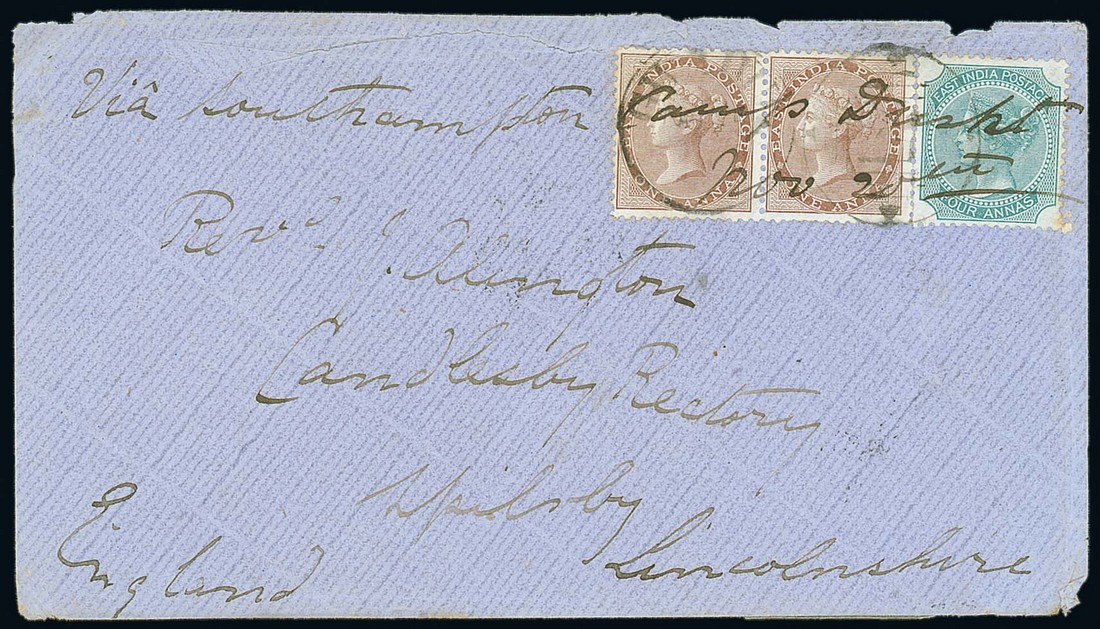 Viâ Southampton
EAST INDIA POSTAGE
ONE ANNA
EAST INDIA POSTAGE
ONE ANNA
EAST INDIA POSTAGE
FOUR ANNAS
Camp
Nov
Revd J. Alington
Candlesby Rectory
Spilsby
Lincolnshire
England